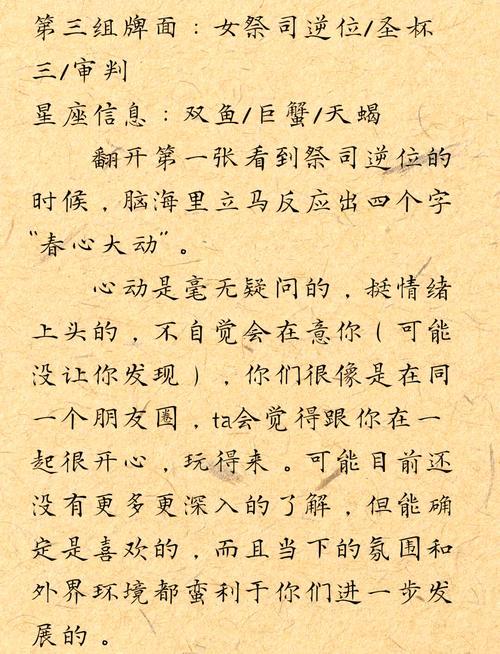 第三组牌面：女祭司逆位/圣杯
三/审判
星座信息：双鱼/巨蟹/天蝎
翻开第一张看到祭司逆位的
时候，脑海里立马反应出四个字
“春心大动”。
心动是毫无疑问的，挺情绪
上头的，不自觉会在意你（可能
没让你发现），你们很像是在同
一个朋友圈，ta会觉得跟你在一
起很开心，玩得来。可能目前还
没有更多更深入的了解，但能确
定是喜欢的，而且当下的氛围和
外界环境都蛮利于你们进一步发
展的。